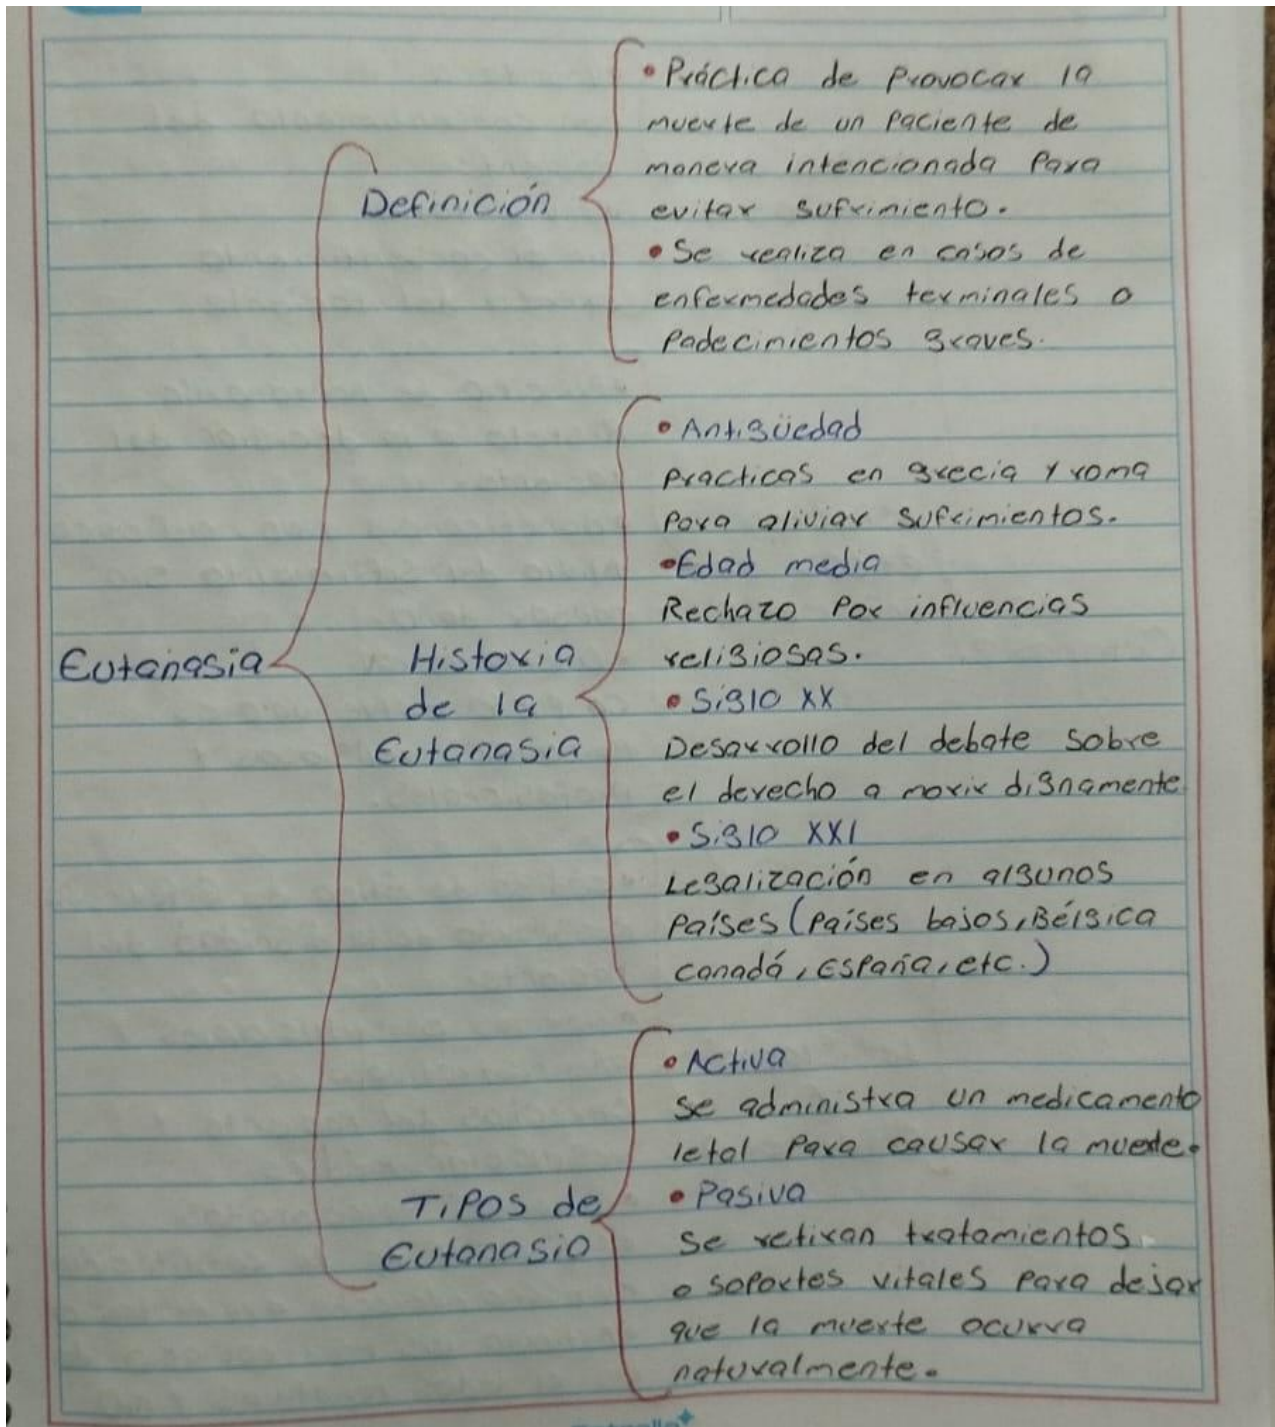 Eutanasia
Definición
• Práctica de Provocar la
muerte de un Paciente de
manera intencionada Para
evitar sufrimiento.
• Se realiza en casos de
enfermedades terminales o
Padecimientos graves.
Historia
de la
Eutanasia
• Antigüedad
Practicas en grecia y roma
Para aliviar Sufrimientos.
• Edad media
Rechazo Por influencias
religiosas.
• Siglo XX
Desarrollo del debate sobre
el derecho a morir dignamente
• Siglo XXI
Legalización en algunos
Países (Países bajos, Bélgica
Canadá, España, etc.)
Tipos de
Eutanasia
• Activa
Se administra un medicamento
letal Para causar la muerte.
• Pasiva
Se retiran tratamientos
o soportes vitales Para dejar
que la muerte ocurra
naturalmente.